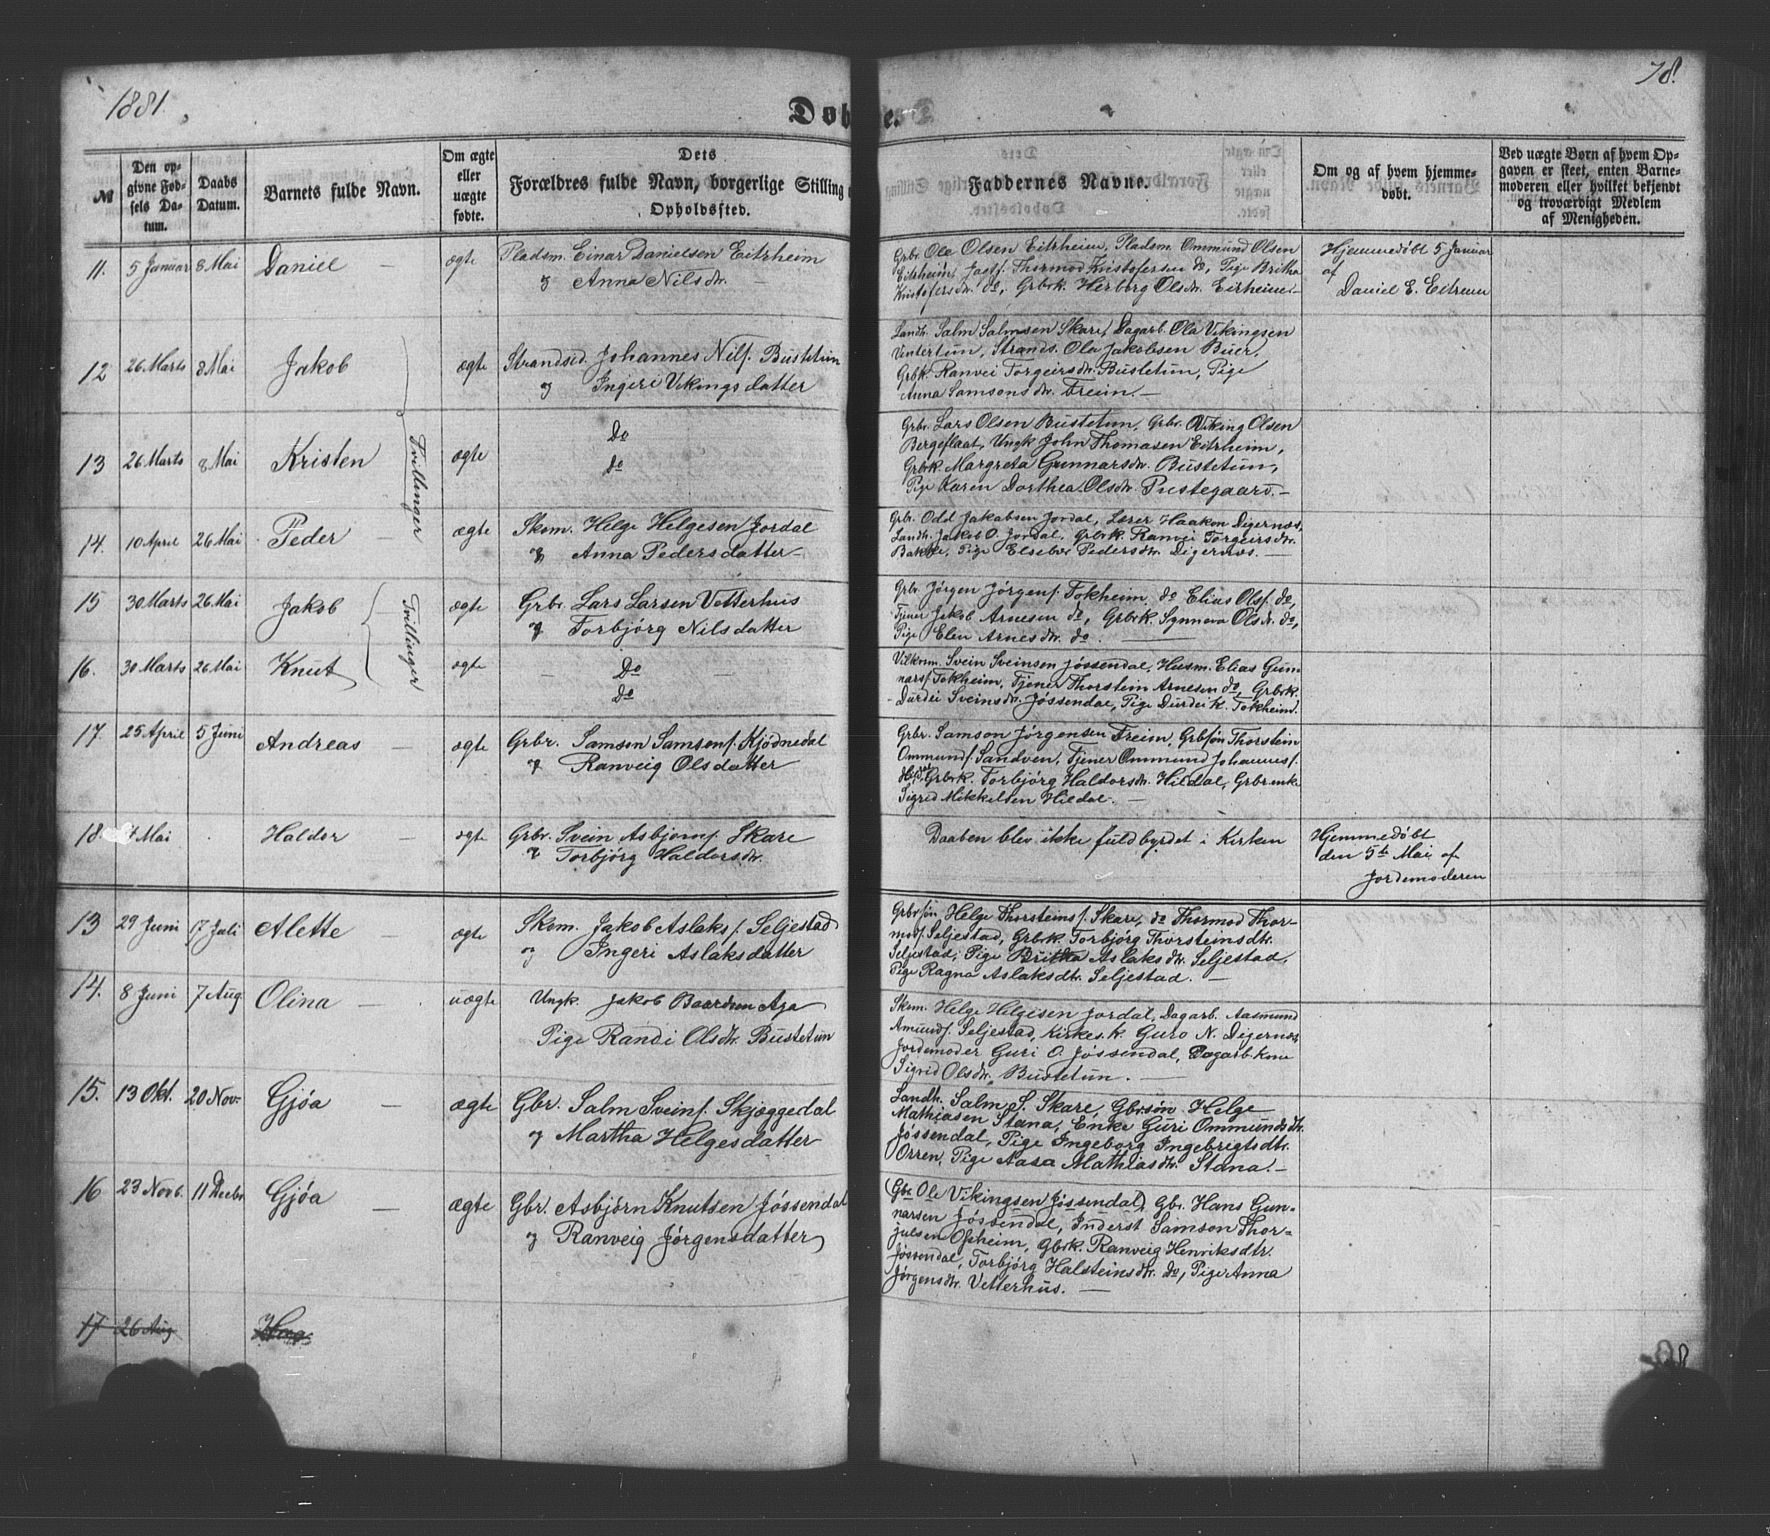 1881.
Døbte.
78.
№
Den opgivne Fødsels Datum.
Daabs Datum.
Barnets fulde Navn.
Om ægte eller uægte fødte.
Dets Forældres fulde Navn, borgerlige Stilling
Opholdssted.
Faddernes Navne.
Om og af hvem hjemmedøbt.
Ved uægte Børn af hvem Opgaven er skeet, enten Barnemoderen eller hvilket bekjendt og troværdigt Medlem af Menigheden.
11. 5 Januar 8 Mai Daniel — ægte Pladsm. Einar Danielsen Eitrheim
& Anna Nilsdtr. —
Grbr. Ole Olsen Eitrheim, Pladsm. Ommund Olsen
Eitrheim, Thormod Kristofersen do, Pige Britha
Kristofersdtr. do, Grbrk. Herborg Olsdtr. Eirheim.—
Hjemmedøbt 5 Januar
af
Daniel E. Eitreim
12 26 Marts 8 Mai Jakob ægte Strandsid. Johannes Nilss. Bustetun
og Ingeri Vikingsdatter
Landh. Salm Salmsen Skare, Dagarb. Ola Vikingsen
Vintertun, Strands. Ola Jakobsen Buer,
Grbk. Ranvei Torgeirsdtr. Bustetun, Pige
Anna Samsonsdtr. Freim.—
Tvillinger
13 26 Marts 8 Mai Kristen ægte Do
do
Grbr. Lars Olsen Bustetun, Grbr. Viking Olsen
Bergeflaat, Ungk John Thomasen Eitrheim,
Grbrk. Margreta Gunnarsdtr. Bustetun,
Pige Karen Dorthea Olsdtr. Prestegaard.—
14. 10 April 26 Mai Peder — ægte Skom. Helge Helgesen Jordal
& Anna Pedersdatter —
Gbr. Odd Jakobsen Jordal, Lærer Haakon Digernæs,
Landh. Jakob O. Jordal, Grbrk. Ranvei Torgeirsdtr.
Bakke, Pige Elsebe Pedersdtr. Digernæs. —
15 30 Marts 26 Mai Jakob ægte Grbr. Lars Larsen Vetterhus
& Torbjørg Nilsdatter
Grbr. Jørgen Jørgens. Tokheim, do Elias Ols. do,
Tjener Jakob Arnesen do, Grbrk. Synneva Olsdtr. do,
Pige Elen Arnesdtr. do. —
Tvillinger
16. 30 Marts 26 Mai Knut ægte — Do —
Do
Vilkorm. Svein Sveinsen Jøssendal, Husm. Elias Gunnars. Tokheim, Tjener Thorstein Arnesen do, Grbrk.
Durdei Sveinsdtr. Jøssendal, Pige Durdei K. Tokheim.
17. 25 April 5 Juni Andreas — ægte Grbr. Samson Samsons. Kjødnedal
& Ranveig Olsdatter
Grbr. Samson Jørgensen Freim, Grbsøn Thorstein
Ommunds. Sandven, Tjener Ommund Johannes.
Hildal, Grbrk. Torbjørg Haldorsdtr. Hildal, Grbrenke
Sigrid Mikkelsen Hildal. —
18. 4 Mai Haldor — ægte Grbr. Svein Asbjørns. Skare
& Torbjørg Haldorsdtr.
Daaben blev ikke fuldbyrdet i Kirken
Hjemmedøbt
den 5te Mai af
Jordemoderen
13 29 Juni 17 Juli Alette — ægte Skom. Jakob Aslaks. Seljestad
og Ingeri Aslaksdatter
Grbrsøn Helge Thorsteins. Skare, do Thormod Thormods. Seljestad, Grbrk. Torbjørg Thorsteinsdtr.
Seljestad, Pige Britha Aslaksdtr. Seljestad,
Pige Ragna Aslaksdtr. Seljestad. —
14. 8 Juni 7 Aug. Olina — uægte Ungk. Jakob Baardsen Aga
Pige Randi Olsdtr. Bustetun
Skom. Helge Helgesen Jordal, Dagarb. Aasmund
Amunds. Seljestad, Kirkes.k. Guro N. Digernæs,
Jordemoder Guri O. Jøssendal, Dagarb.kone
Sigrid Olsdtr. Bustetun. —
15. 13 Okt. 20 Nov. Gjøa — ægte Gbr. Salm Sveins. Skjæggedal
og Martha Helgesdatter
Landh. Salm S. Skare, Gbrsøn Helge
Mathiasen Stana, Enke Guri Ommundsdtr.
Jøssendal, Pige Ingeborg Ingebrigtsdtr.
Orren, Pige Aasa Mathiasdtr. Stana.—
16 23 Novb. 11 Decbr. Gjøa — ægte Gbr. Asbjørn Knutsen Jøssendal
og Ranveig Jørgensdatter
(Gbr. Ole Vikingsen Jøssendal), Gbr. Hans Gunnarsen Jøssendal, Inderst Samson Thorjulsen Opheim, Gbrk. Ranveig Henriksdtr.
Jøssendal, Torbjørg Halsteinsdtr. do, Pige Anna
Jørgensdtr. Vetterhus. —
17 26 Aug